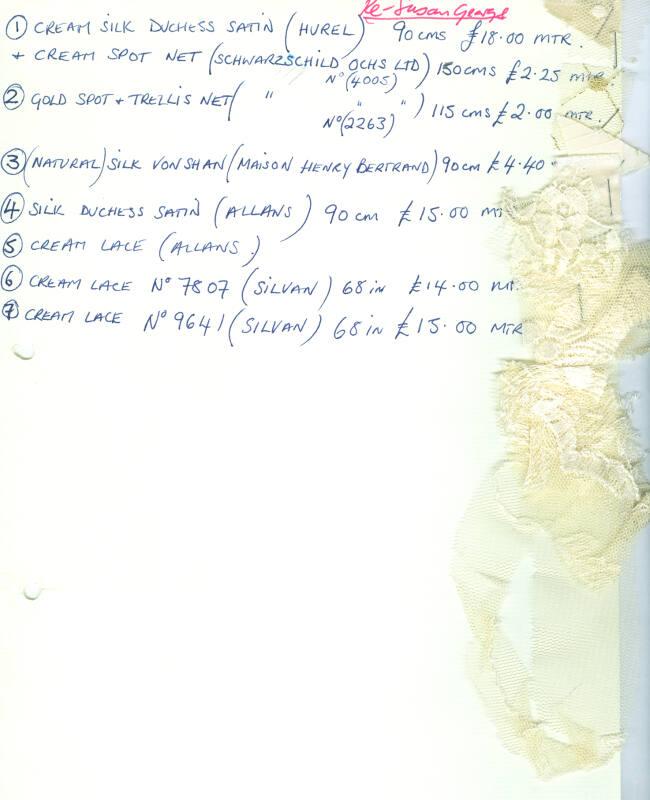 Re-Susan George
① CREAM SILK DUCHESS SATIN (HUREL) 90cms £18.00 MTR.
+ CREAM SPOT NET (SCHWARZSCHILD OCHS LTD) 150cms £2.25 MTR.
Nº(4005)
② GOLD SPOT + TRELLIS NET ( " " " ) 115 cms £2.00 MTR.
Nº(2263)
③ (NATURAL) SILK VONSHAN (MAISON HENRY BERTRAND) 90cm £4.40
④ SILK DUCHESS SATIN (ALLANS) 90cm £15.00 MT
⑤ CREAM LACE (ALLANS)
⑥ CREAM LACE Nº 7807 (SILVAN) 68in £14.00 MT.
⑦ CREAM LACE Nº 9641 (SILVAN) 68in £15.00 MTR